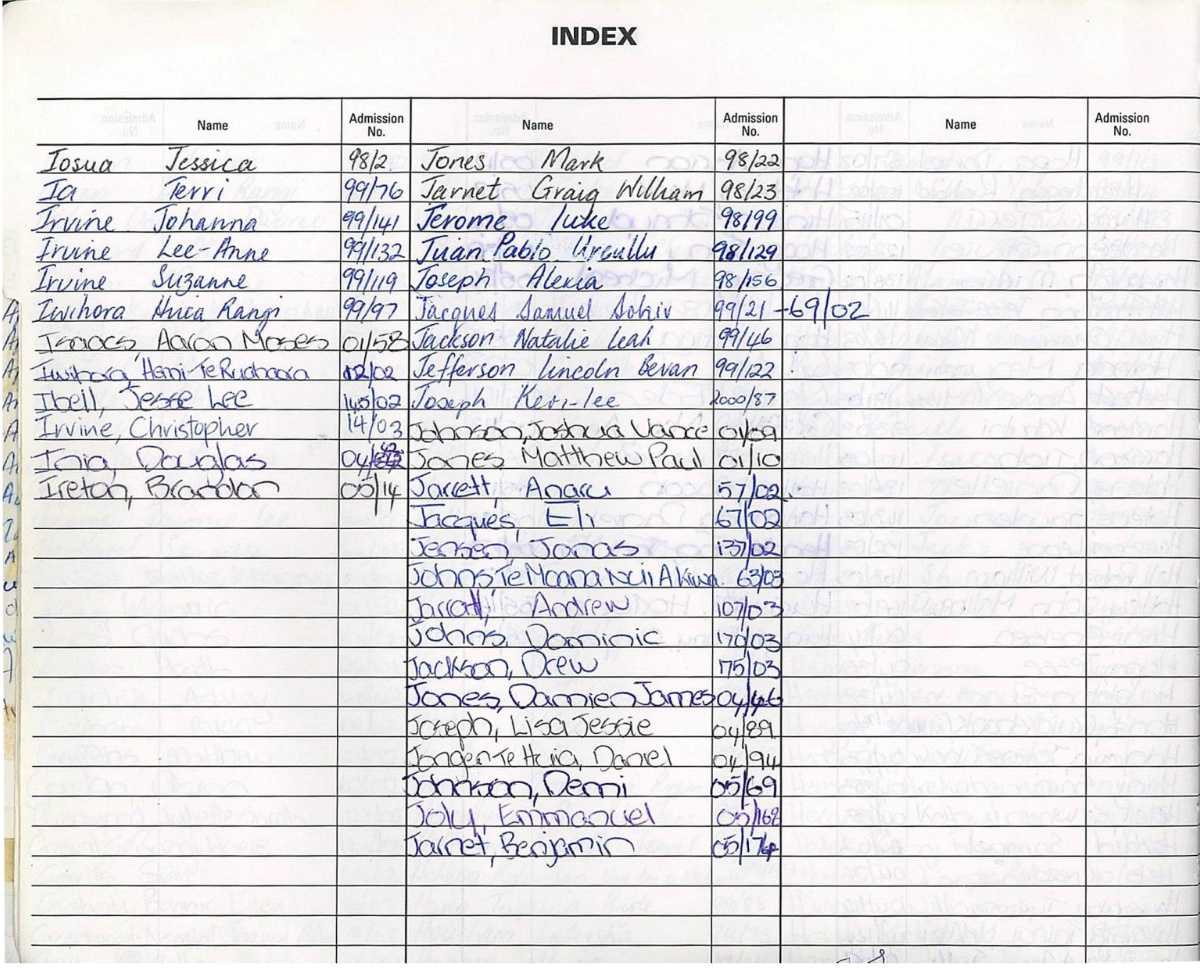 INDEX
Name Admission No. Name Admission No. Name Admission No.
Iosua Jessica 98/2 Jones Mark 98/22
Ia Terri 99/76 Jarnet Graig William 98/23
Irvine Johanna 99/141 Jerome Luke 98/99
Irvine Lee-Anne 99/132 Juan Pablo 98/129
Irvine Suzanne 99/119 Joseph Alexia 98/156
Iwihora Huia Rangi 99/97 Jacques Samuel 99/21 - 69/02
Isaacs, Aaron Moses 01/58 Jackson Natalie Leah 99/46
Iwihora, Hemi-Te 12/02 Jefferson Lincoln Bevan 99/122
Ibell, Jesse Lee 145/02 Joseph Keri-lee 2000/87
Irvine, Christopher 14/03 Johnson, Joshua Vance 01/09
Inia, Douglas 04/ Jones Matthew Paul 01/10
Ireton, Brandon 05/14 Jarrett, Anaru 57/02
Jacques, Eli 67/02
Jensen, Jonas 137/02
Johns, Te Moana Nui A Kiwa. 63/03
Andrew 107/03
Johns, Dominic 170/03
Jackson, Drew 175/03
Jones, Damien James 04/46
Joseph, Lisa Jessie 04/89
Jongen-Te Huia, Daniel 04/94
Johnson, Demi 05/69
Joly, Emmanuel 05/168
Jarnet, Benjamin 05/174